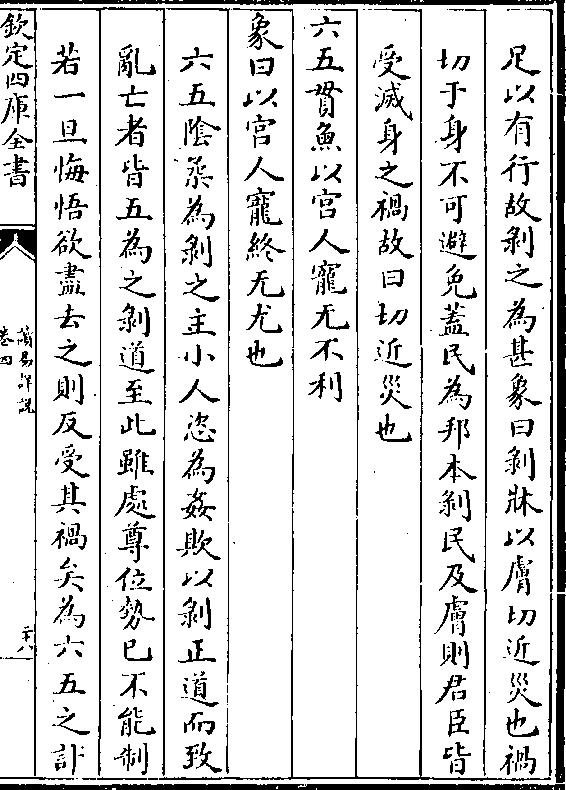 足以有行故剝之為甚象曰剝牀以膚切近災也禍
切于身不可避免蓋民為邦本剝民及膚則君臣皆
受滅身之禍故曰切近災也
六五貫魚以宫人寵无不利
象曰以宫人寵終无尤也
六五陰柔為剝之主小人恣為姦欺以剝正道而致
亂亡者皆五為之剝道至此雖處尊位勢已不能制
若一旦悔悟欲盡去之則反受其禍矣為六五之計
欽定四庫全書
讀易詳說
卷四
二十八